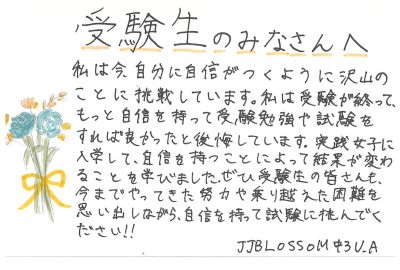 受験生のみなさんへ
私は今、自分に自信がつくように沢山の
ことに挑戦しています。私は受験が終って、
もっと自信を持って受験勉強や試験を
すれば良かったと後悔しています。実践女子に
入学して、自信を持つことによって結果が変わ
ることを学びました。ぜひ受験生の皆さんも、
今までやってきた努力や乗り越えた困難を
思い出しながら、自信を持って試験に挑んでく
ださい!!
JJBLOSSOM 中3 U.A